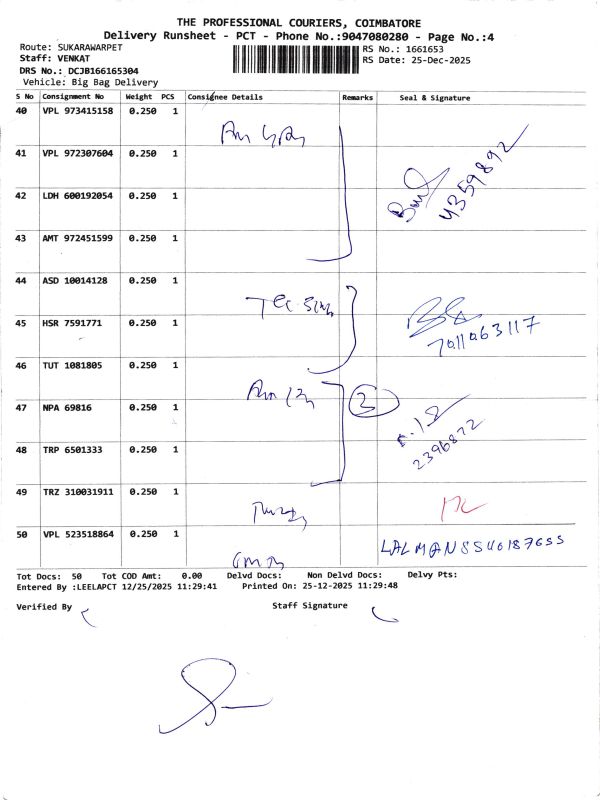 THE PROFESSIONAL COURIERS, COIMBATORE
Delivery Runsheet - PCT - Phone No.:9047080280 - Page No.:4
Route: SUKARAWARPET
RS No.: 1661653
Staff: VENKAT
RS Date: 25-Dec-2025
DRS No.: DCJB166165304
Vehicle: Big Bag Delivery
S No Consignment No Weight PCS Consignee Details Remarks Seal & Signature
40 VPL 973415158 0.250 1
41 VPL 972307604 0.250 1
4359892
42 LDH 600192054 0.250 1
43 AMT 972451599 0.250 1
44 ASD 10014128 0.250 1
45 HSR 7591771 0.250 1
7011063117
46 TUT 1081805 0.250 1
47 NPA 69816 0.250 1
48 TRP 6501333 0.250 1
2396872
49 TRZ 310031911 0.250 1
50 VPL 523518864 0.250 1
Tot Docs: 50 Tot COD Amt: 0.00 Delvd Docs: Non Delvd Docs: Delvy Pts:
Entered By :LEELAPCT 12/25/2025 11:29:41 Printed On: 25-12-2025 11:29:48
Verified By Staff Signature